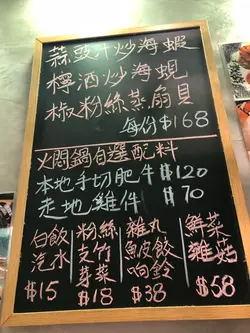 蒜豉汁炒海蝦
檸酒炒海蜆
椒粉絲蒸扇貝
每份$168
火焗鍋自選配料
本地手切肥牛$120
走地雞件$70
白飯
汽水
$15
粉絲
支竹
芽菜
$18
雜丸
魚皮餃
响鈴
$38
鮮菜
雜菇
$58